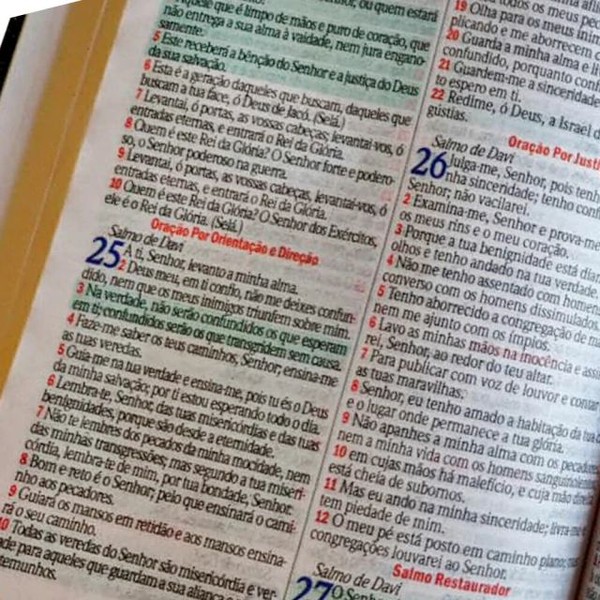 aquele que é limpo de mãos e puro de coração, que
não entrega a sua alma à vaidade, nem jura engano-
samente.
5 Este receberá a bênção do Senhor e a justiça do Deus
da sua salvação.
6 Esta é a geração daqueles que buscam, daqueles que
buscam a tua face, ó Deus de Jacó. (Selá.)
7 Levantai, ó portas, as vossas cabeças; levantai-vos, ó
entradas eternas, e entrará o Rei da Glória.
8 Quem é este Rei da Glória? O Senhor forte e podero-
so, o Senhor poderoso na guerra.
9 Levantai, ó portas, as vossas cabeças, levantai-vos, ó
entradas eternas, e entrará o Rei da Glória.
10 Quem é este Rei da Glória? O Senhor dos Exércitos,
ele é o Rei da Glória. (Selá.)
Oração Por Orientação e Direção
Salmo de Davi
25 A ti, Senhor, levanto a minha alma.
2 Deus meu, em ti confio, não me deixes confun-
dido, nem que os meus inimigos triunfem sobre mim.
3 Na verdade, não serão confundidos os que esperam
em ti; confundidos serão os que transgridem sem causa.
4 Faze-me saber os teus caminhos, Senhor; ensina-me
as tuas veredas.
5 Guia-me na tua verdade e ensina-me, pois tu és o Deus
da minha salvação; por ti estou esperando todo o dia.
6 Lembra-te, Senhor, das tuas misericórdias e das tuas
benignidades, porque são desde a eternidade.
7 Não te lembres dos pecados da minha mocidade, nem
das minhas transgressões; mas segundo a tua miseri-
córdia, lembra-te de mim, por tua bondade, Senhor.
8 Bom e reto é o Senhor; pelo que ensinará o cami-
nho aos pecadores.
9 Guiará os mansos em retidão e aos mansos ensina-
rá o seu caminho.
10 Todas as veredas do Senhor são misericórdia e ver-
dade para aqueles que guardam a sua aliança
19 Olha para os meus
plicando e me aborrecem
20 Guarda a minha alma e
confundido, porquanto
21 Guardem-me a sinceridade
to espero em ti.
22 Redime, ó Deus, a Israel
gústias.
Oração Por
Salmo de Davi
26 Julga-me, Senhor, pois
nha sinceridade; tenho
Senhor; não vacilarei.
2 Examina-me, Senhor, e prova-me
os meus rins e o meu coração.
3 Porque a tua benignidade está
olhos e tenho andado na tua verdade.
4 Não me tenho assentado com homens
converso com os homens dissimulados.
5 Tenho aborrecido a congregação de
nem me ajunto com os ímpios.
6 Lavo as minhas mãos na inocência e
rei, Senhor, ao redor do teu altar.
7 Para publicar com voz de louvor e contar
as tuas maravilhas.
8 Senhor, eu tenho amado a habitação da tua
e o lugar onde permanece a tua glória.
9 Não apanhes a minha alma com os pecadores
nem a minha vida com os homens sanguinolentos
10 em cujas mãos há malefício, e cuja mão
está cheia de subornos.
11 Mas eu ando na minha sinceridade; livra-me
tem piedade de mim.
12 O meu pé está posto em caminho plano;
congregações louvarei ao Senhor.
Salmo Restaurador
Salmo de Davi
27